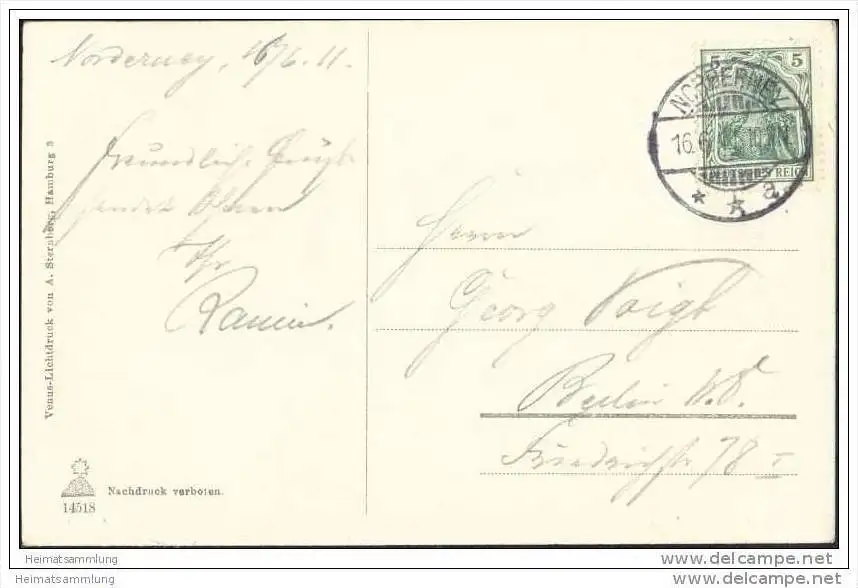 Norderney, 16/6. 11.
Freundliche Grüße
sendet Ihnen
Ihr
Ramin.
Venus-Lichtdruck von A. Sternberg, Hamburg 3
Nachdruck verboten.
14518
5 5
DEUTSCHES REICH
NORDERNEY
16.6
* * a
Herrn
Georg Voigt
Berlin
Friedrichstr 78 I
Heimatsammlung
Heimatsammlung
www.delcampe.net
www.delcampe.net